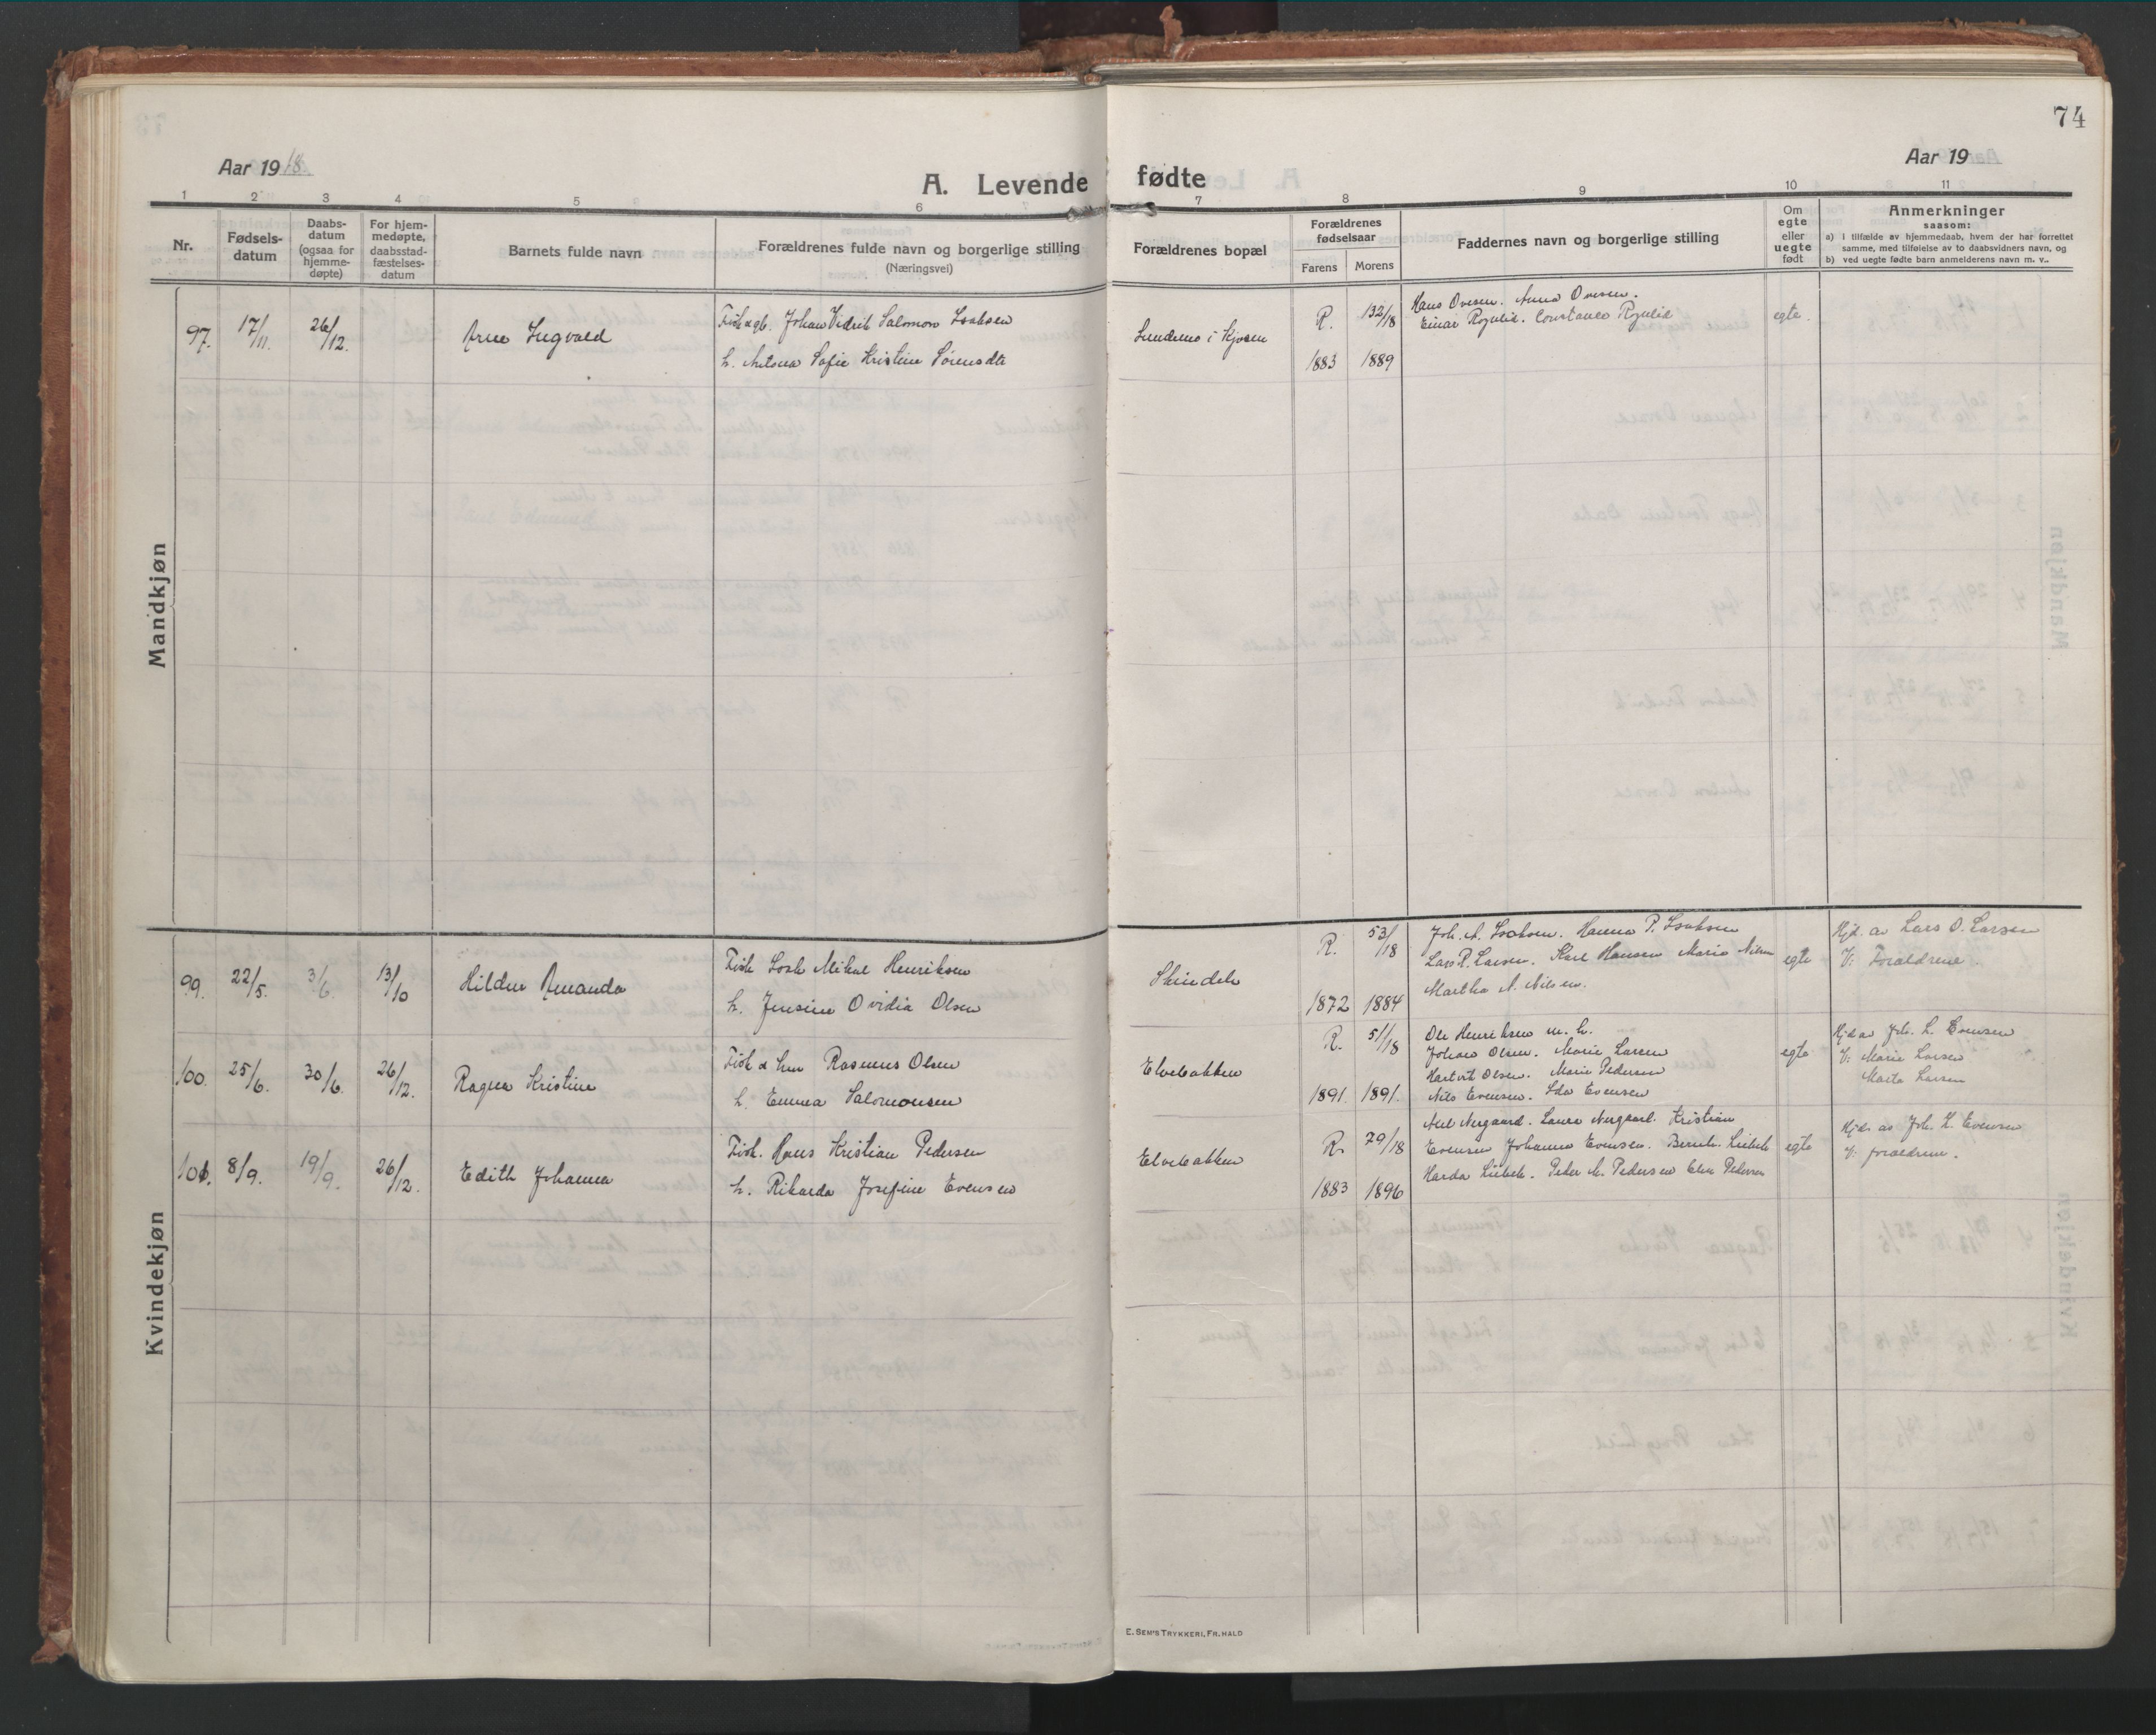 74
Aar 1918.
Aar 19
A. Levende fødte
1 2 3 4 5 6 7 8 9 10 11
Nr.
Fødsels-
datum
Daabs-
datum
(ogsaa for
hjemme-
døpte)
For hjem-
medøpte,
daabsstad-
fæstelses-
datum
Barnets fulde navn
Forældrenes fulde navn og borgerlige stilling
(Næringsvei)
Forældrenes bopæl
Forældrenes
fødselsaar
Farens Morens
Faddernes navn og borgerlige stilling
Om
egte
eller
uegte
født
Anmerkninger
saasom:
a) i tilfælde av hjemmedaab, hvem der har forrettet
samme, med tilføielse av to daabsvidners navn, og
b) ved uegte fødte barn anmelderens navn m. v..
Mandkjøn
97. 17/11. 26/12. Arne Ingvald
Johan Salomon Isaksen
h. Sofie Kristine
i Kjosen
R. 132/18
1883 1889
Hans Ovesen. Anna Ovesen.
Einar Rognlid. Constance Rognlid
egte.
Kvindekjøn
99. 22/5. 3/6. 13/10 Hildur Amanda
Fisk Mikal Henriksen
h. Jensine Ovidia Olsen
R. 53/18
1872 1884
Joh. A. Isaksen. Hanna P. Isaksen
Lars P. Larsen. Karl Hansen Marie Nilsen
Martha A. Nilsen.
egte
Hjd. av Lars O. Larsen
V: Forældrene.
100. 25/6. 30/6. 26/12. Ragna Kristine
Rasmus Olsen
h. Emma Salomonsen
Elvebakken
R. 51/18
1891. 1891.
Ole Henriksen m. h.
Johan Olsen. Marie Larsen
Hartvik Olsen. Marie Pedersen
Nils Evensen. Ida Evensen
egte
Hjd av Joh. L. Evensen
V: Marie Larsen
Larsen
101. 8/9. 19/9. 26/12. Edith Johanna
Fisk. Hans Kristian Pedersen
h. Rikarda Josefine Evensen
Elvebakken
R. 79/18
1883 1896
Kristian
Evensen Johanna Evensen.
Peder A. Pedersen Pedersen
egte
Hjd. av Joh. L. Evensen
V: forældrene.
E. SEM'S TRYKKERI, FR.HALD